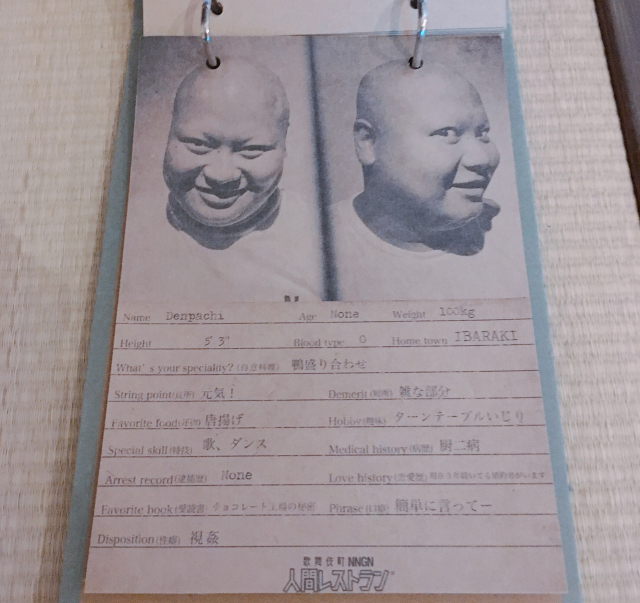 Name Denpachi Age None Weight 100kg
Height 5' 3" Blood type O Home town IBARAKI
What's your speciality?(得意料理) 鴨盛り合わせ
String point(長所) 元気! Demerit(短所) 雑な部分
Favorite food(好物) 唐揚げ Hobby(趣味) ターンテーブルいじり
Special skill(特技) 歌、ダンス Medical history(病歴) 厨二病
Arrest record(逮捕歴) None Love history(恋愛歴)
Favorite book(愛読書) チョコレート工場の秘密 Phrase(口癖) 簡単に言ってー
Disposition(性癖) 視姦
歌舞伎町 NNGN
人間レストラン